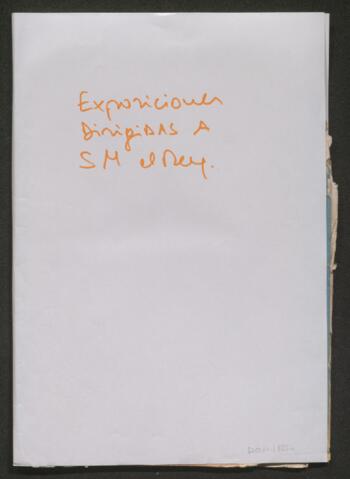 Exposiciones
DirigiDAS A
S M el Rey.